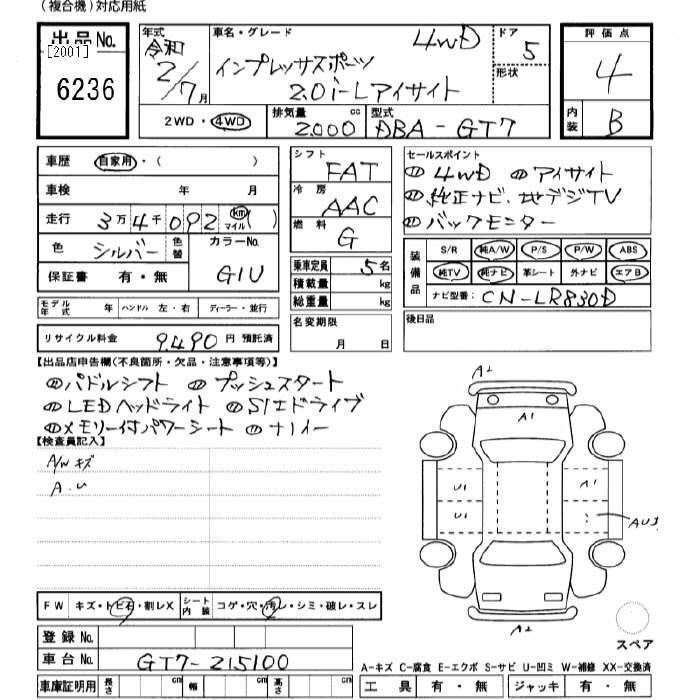 (複合機)対応用紙
出品No.
[2001]
6236
年式
令和
2/7月
車名・グレード
4WD
インプレッサスポーツ
2.0i-Lアイサイト
ドア
5
形状
評価点
4
内装
B
2WD・4WD
排気量
2000cc
型式
DBA-GT7
車歴 自家用・( )
車検 年 月
走行 3万4千092 km マイル( )
色 シルバー 色替
カラーNo.
G1U
保証書 有・無
モデル年式 年 ハンドル 左・右 ディーラー・並行
リサイクル料金 9490円 預託済
シフト FAT
冷房 AAC
燃料 G
乗車定員 5名
積載量 kg
総重量 kg
名変期限
月 日
セールスポイント
4WD アイサイト
純正ナビ、地デジTV
バックモニター
装備品
S/R 純A/W P/S P/W ABS
純TV 純ナビ 革シート 外ナビ エアB
ナビ型番: CN-LR830D
後日品
【出品店申告欄(不良箇所・欠品・注意事項等)】
パドルシフト プッシュスタート
LEDヘッドライト SIドライブ
メモリー付パワーシート
【検査員記入】
A/Wキズ
A.U
A1
U1
A1
U1
AU3
FW キズ・トビ石・割レX
シート内装 コゲ・穴・汚レ・シミ・破レ・スレ
登録No.
車台No. GT7-215100
車庫証明用 長さ cm 幅 cm 高さ cm
スペア
A-キズ C-腐食 E-エクボ S-サビ U-凹ミ W-補修 XX-交換済
工具 有・無 ジャッキ 有・無